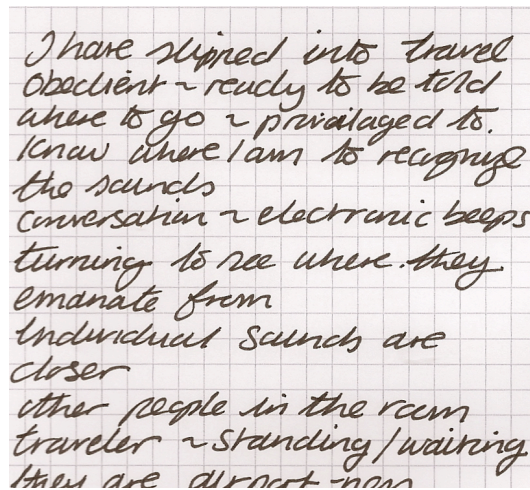 I have slipped into travel
Obedient ~ ready to be told
where to go ~ privailaged to.
Know where I am to recognize
the sounds
conversation ~ electronic beeps
turning to see where they
emanate from
Individual sounds are
closer
other people in the room
traveler ~ standing / waiting
they are airport